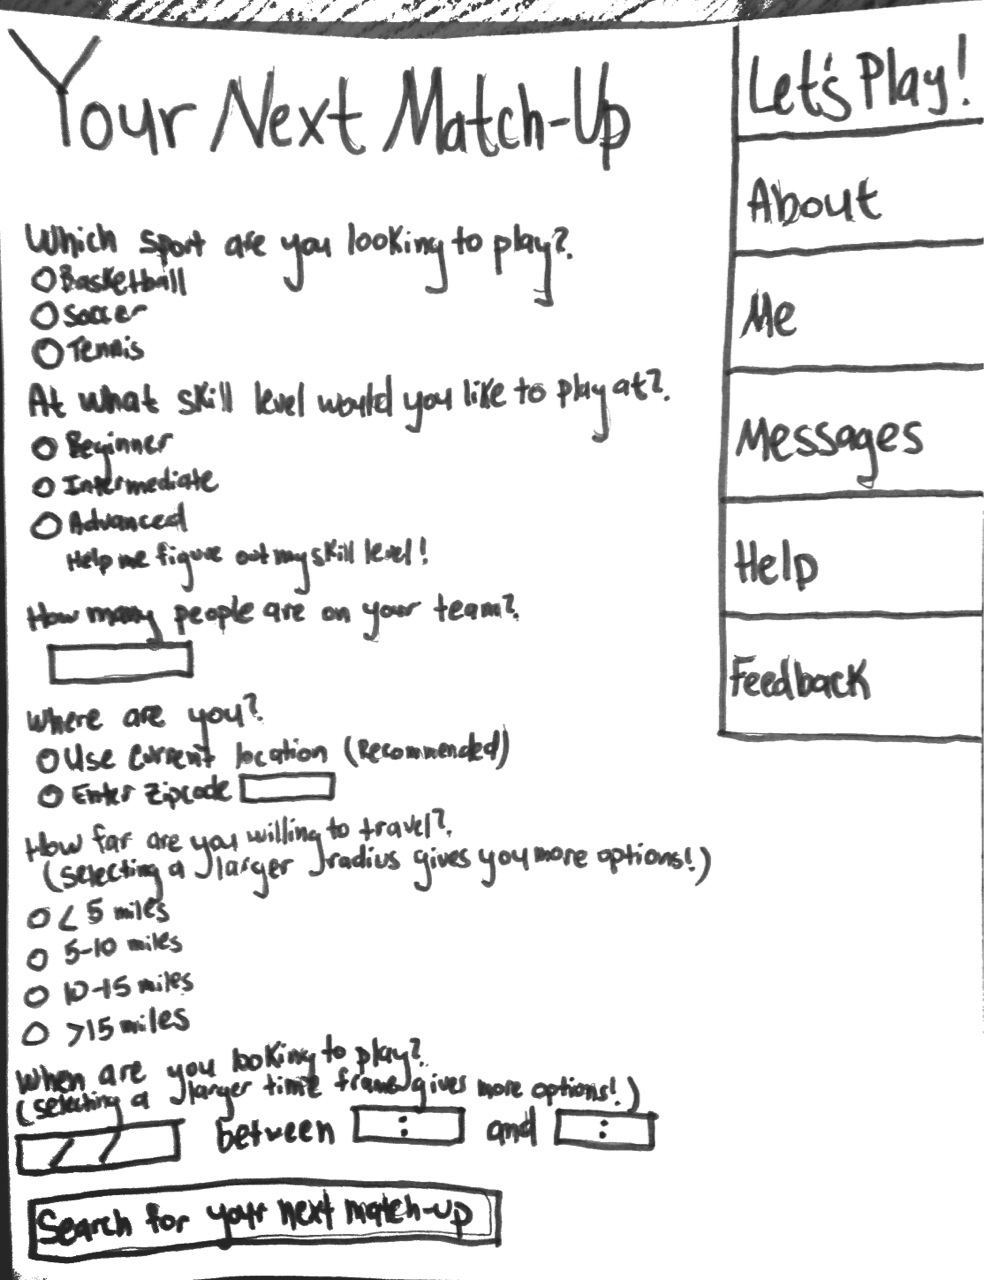 Your Next Match-Up
Which sport are you looking to play?
Basketball
Soccer
Tennis
At what skill level would you like to play at?
Beginner
Intermediate
Advanced
Help me figure out my skill level!
How many people are on your team?
Where are you?
Use current location (Recommended)
Enter Zipcode
How far are you willing to travel?
(selecting a larger radius gives you more options!)
< 5 miles
5-10 miles
10-15 miles
>15 miles
When are you looking to play?
(selecting a larger time frame gives more options!)
/ / between : and :
Search for your next match-up
Let's Play!
About
Me
Messages
Help
Feedback